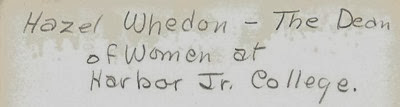 Hazel Whedon - The Dean
of Women at
Harbor Jr. College.